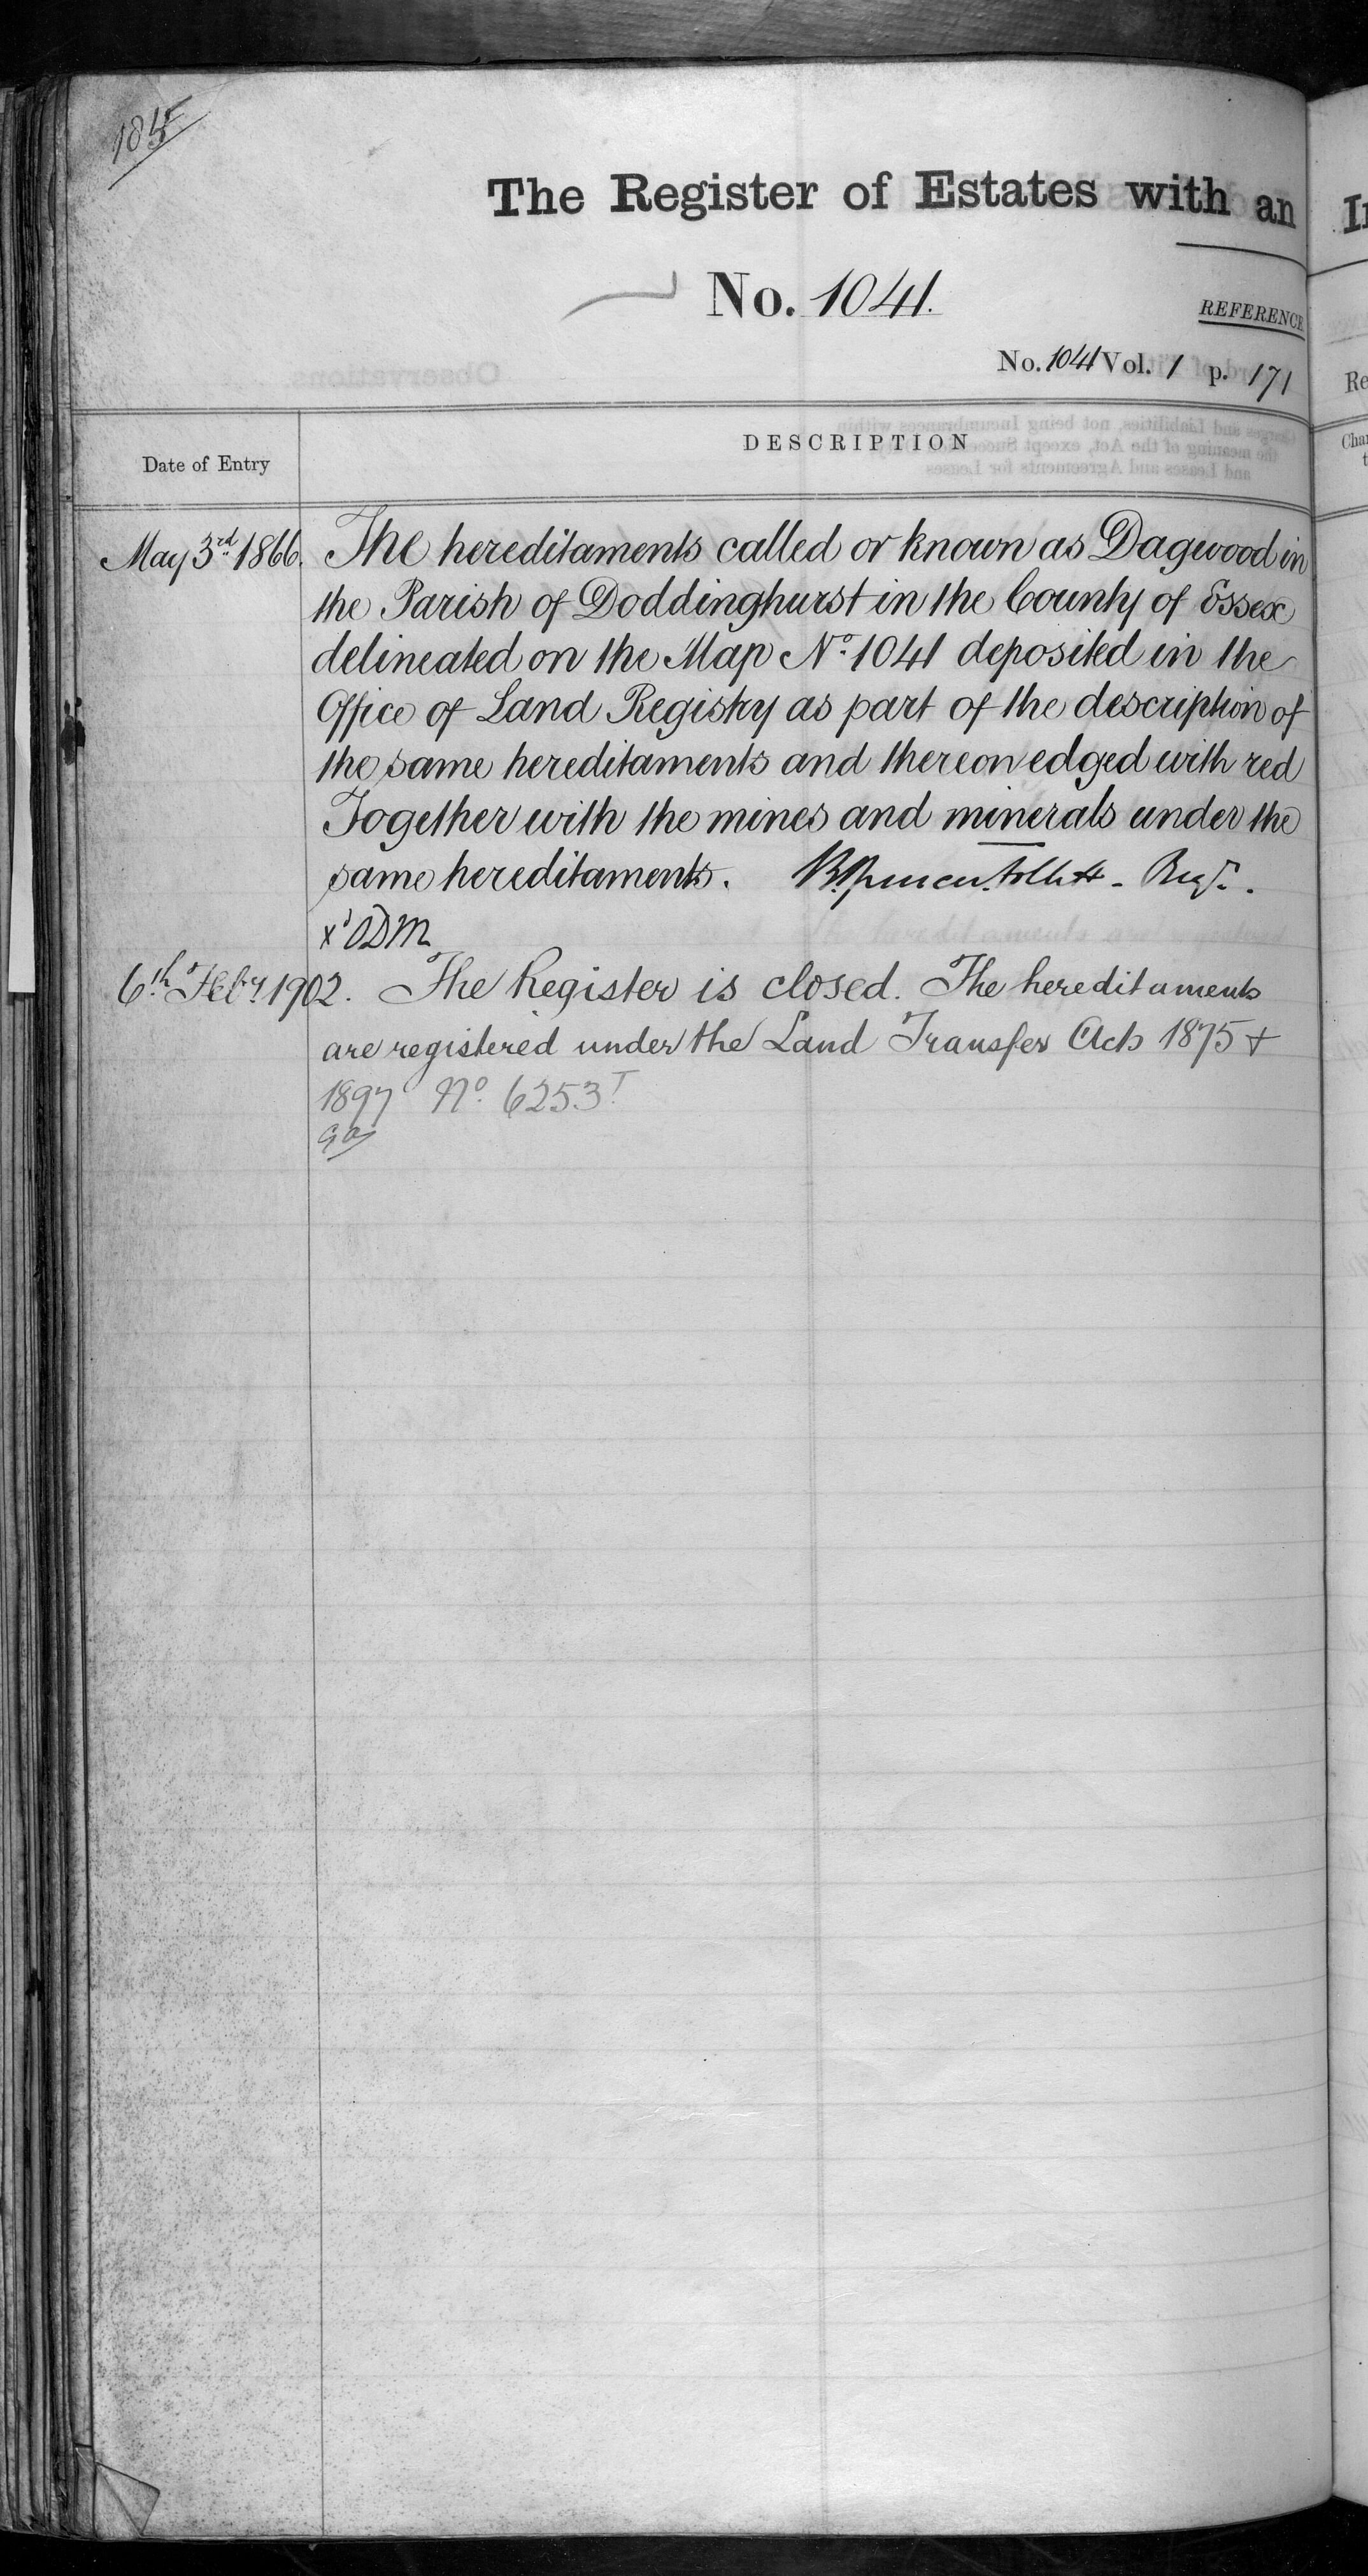 185
The Register of Estates with an
No. 1041.
REFERENCE
No. 1041 Vol. 1 p. 171
Date of Entry
DESCRIPTION
May 3rd 1866. The hereditaments called or known as Dagwood in
the Parish of Doddinghurst in the County of Essex
delineated on the Map No. 1041 deposited in the
Office of Land Registry as part of the description of
the same hereditaments and thereon edged with red
Together with the mines and minerals under the
same hereditaments. Brent Spencer Follett - Regr.
xd ODM
6th Feby 1902. The Register is closed. The hereditaments
are registered under the Land Transfer Acts 1875 +
1897 No. 6253T